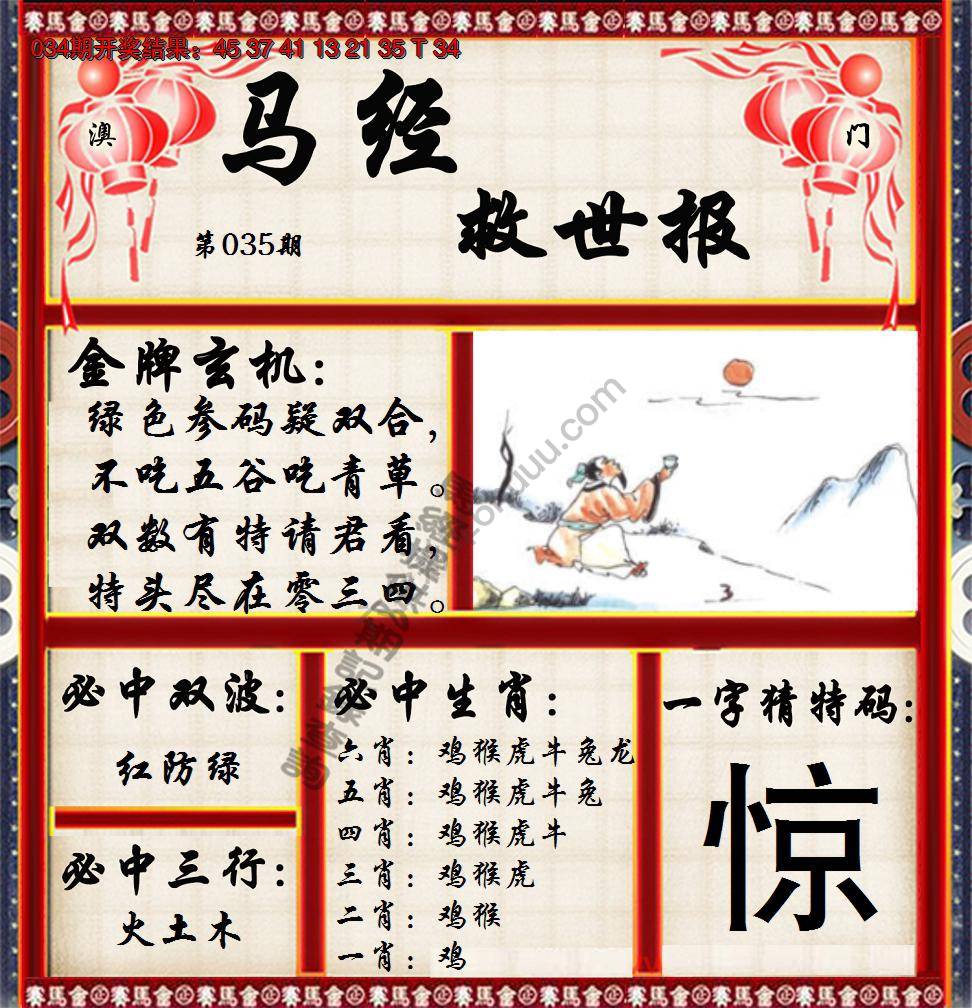 赛馬會
034期开奖结果：45 37 41 13 21 35 T 34
澳
门
马经
救世报
第035期
金牌玄机：
绿色参码疑双合，
不吃五谷吃青草。
双数有特请君看，
特头尽在零三四。
3
必中双波：
红防绿
必中三行：
火土木
必中生肖：
六肖：鸡猴虎牛兔龙
五肖：鸡猴虎牛兔
四肖：鸡猴虎牛
三肖：鸡猴虎
二肖：鸡猴
一肖：鸡
一字猜特码：
惊